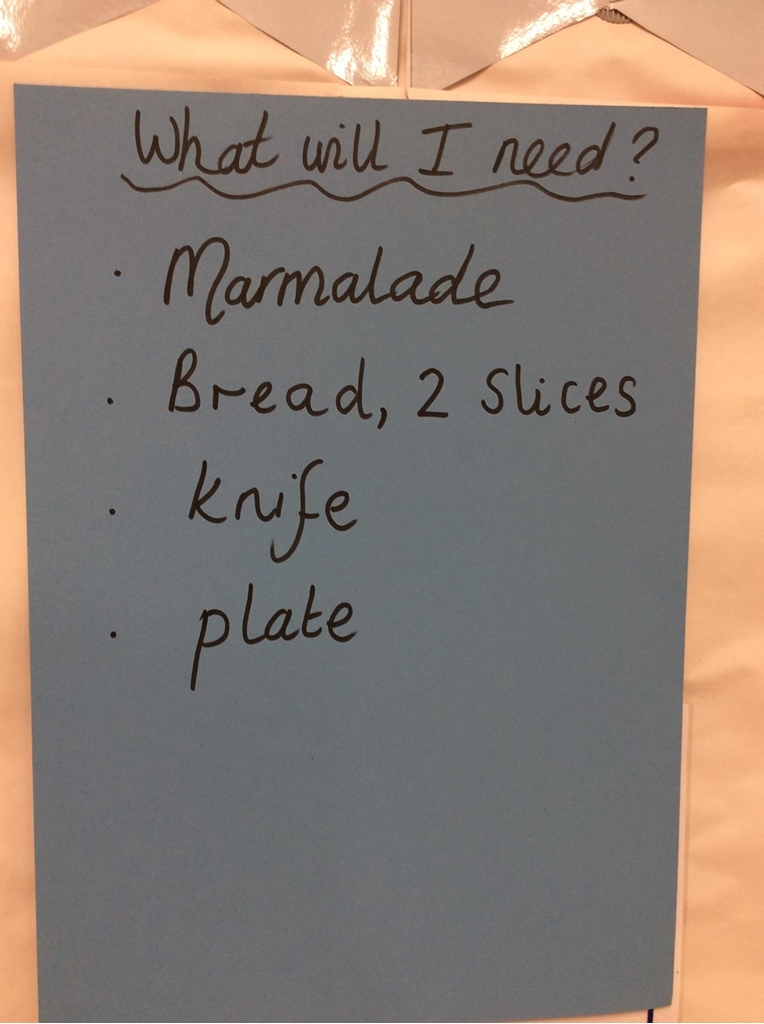 What will I need?
· Marmalade
· Bread, 2 slices
· knife
· plate